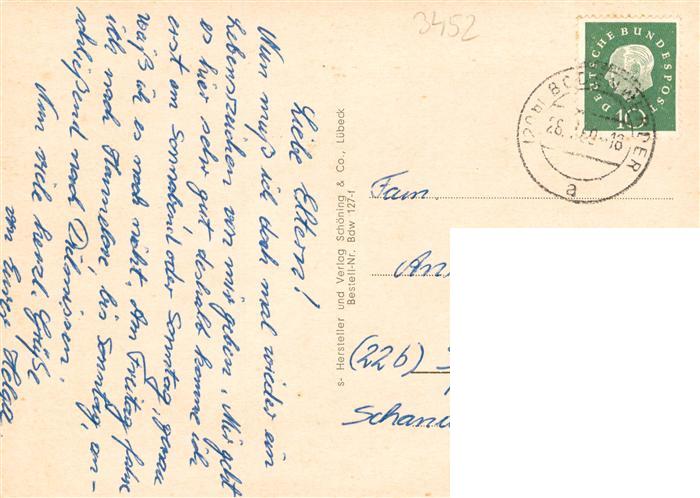 3452
DEUTSCHE BUNDESPOST
10
(20a) BODENWERDER
26. 59-18
a
Liebe Eltern!
Nun muß ich doch mal wieder ein
Lebenszeichen von mir geben. Mir geht
es hier sehr gut, deshalb komme ich
erst am Sonnabend oder Sonntag, genau
weiß ich es noch nicht. Am Freitag fahre
ich nach Hameln, bis Sonntag, an-
schließend nach
Nun viele herzl. Grüße
von Eurer Helga.
s- Hersteller und Verlag Schöning & Co., Lübeck
Bestell-Nr. Bdw 127-f
Fam.
An
(22b)
Schan